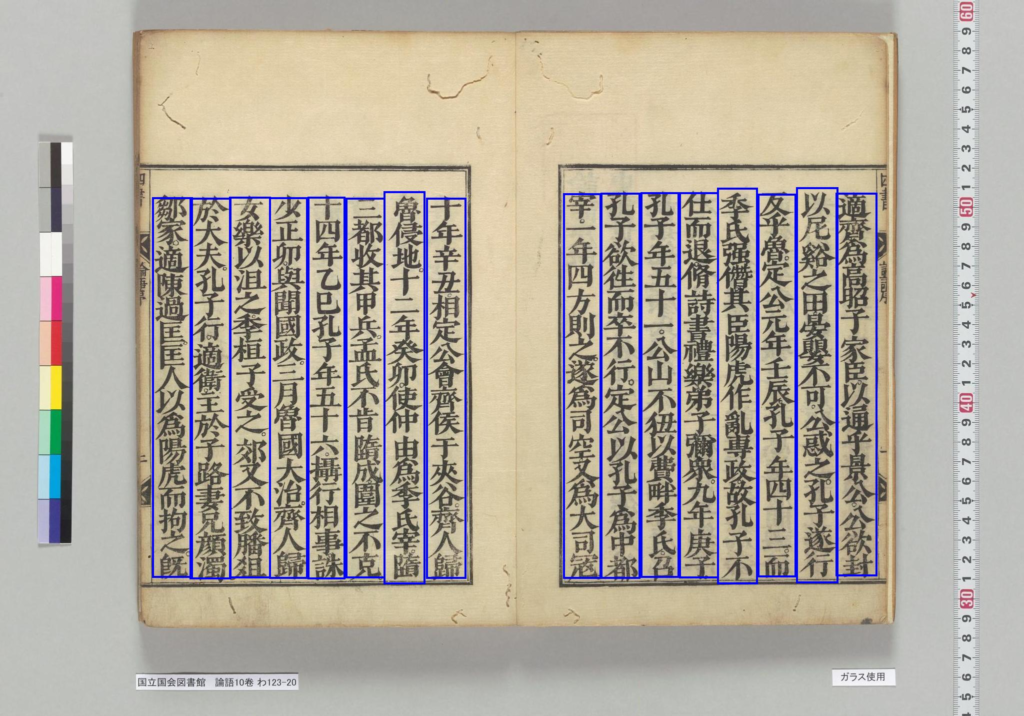 適齊爲高昭子家臣以通乎景公公欲封
以尼谿之田晏嬰不可公惑之孔子遂行
反乎魯定公元年壬辰孔子年四十三而
季氏强僭其臣陽虎作亂專政故孔子不
仕而退脩詩書禮樂弟子彌衆九年庚子
孔子年五十一公山不狃以費畔季氏召
孔子欲徃而卒不行定公以孔子爲中都
宰一年四方則之遂爲司空又爲大司寇
十年辛丑相定公會齊侯于夾谷齊人歸
魯侵地十二年癸卯使仲由爲季氏宰墮
三都收其甲兵孟氏不肯墮成圍之不克
十四年乙巳孔子年五十六攝行相事誅
少正卯與聞國政三月魯國大治齊人歸
女樂以沮之季桓子受之郊又不致膰俎
於大夫孔子行適衞主於子路妻兄顏濁
鄒家適陳過匡匡人以爲陽虎而拘之旣
国立国会図書館 論語10巻 わ123-20
ガラス使用